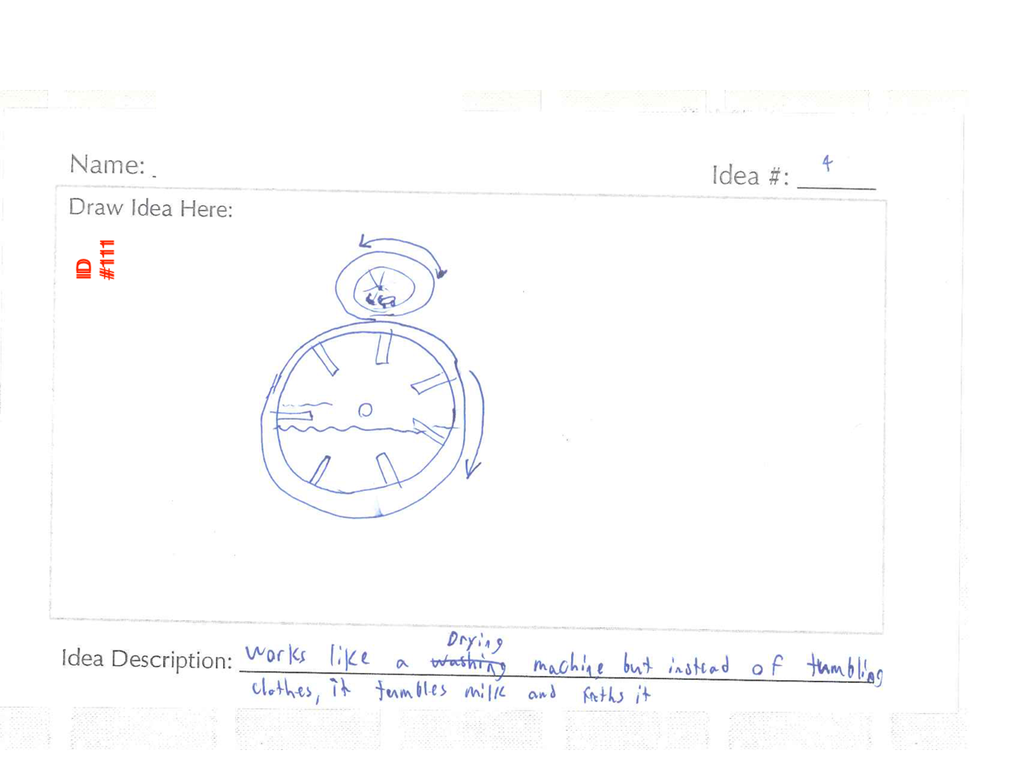 Name:
Idea #: 4
Draw Idea Here:
ID
#111
Drying
Idea Description: works like a washing machine but instead of tumbling
clothes, it tumbles milk and froths it